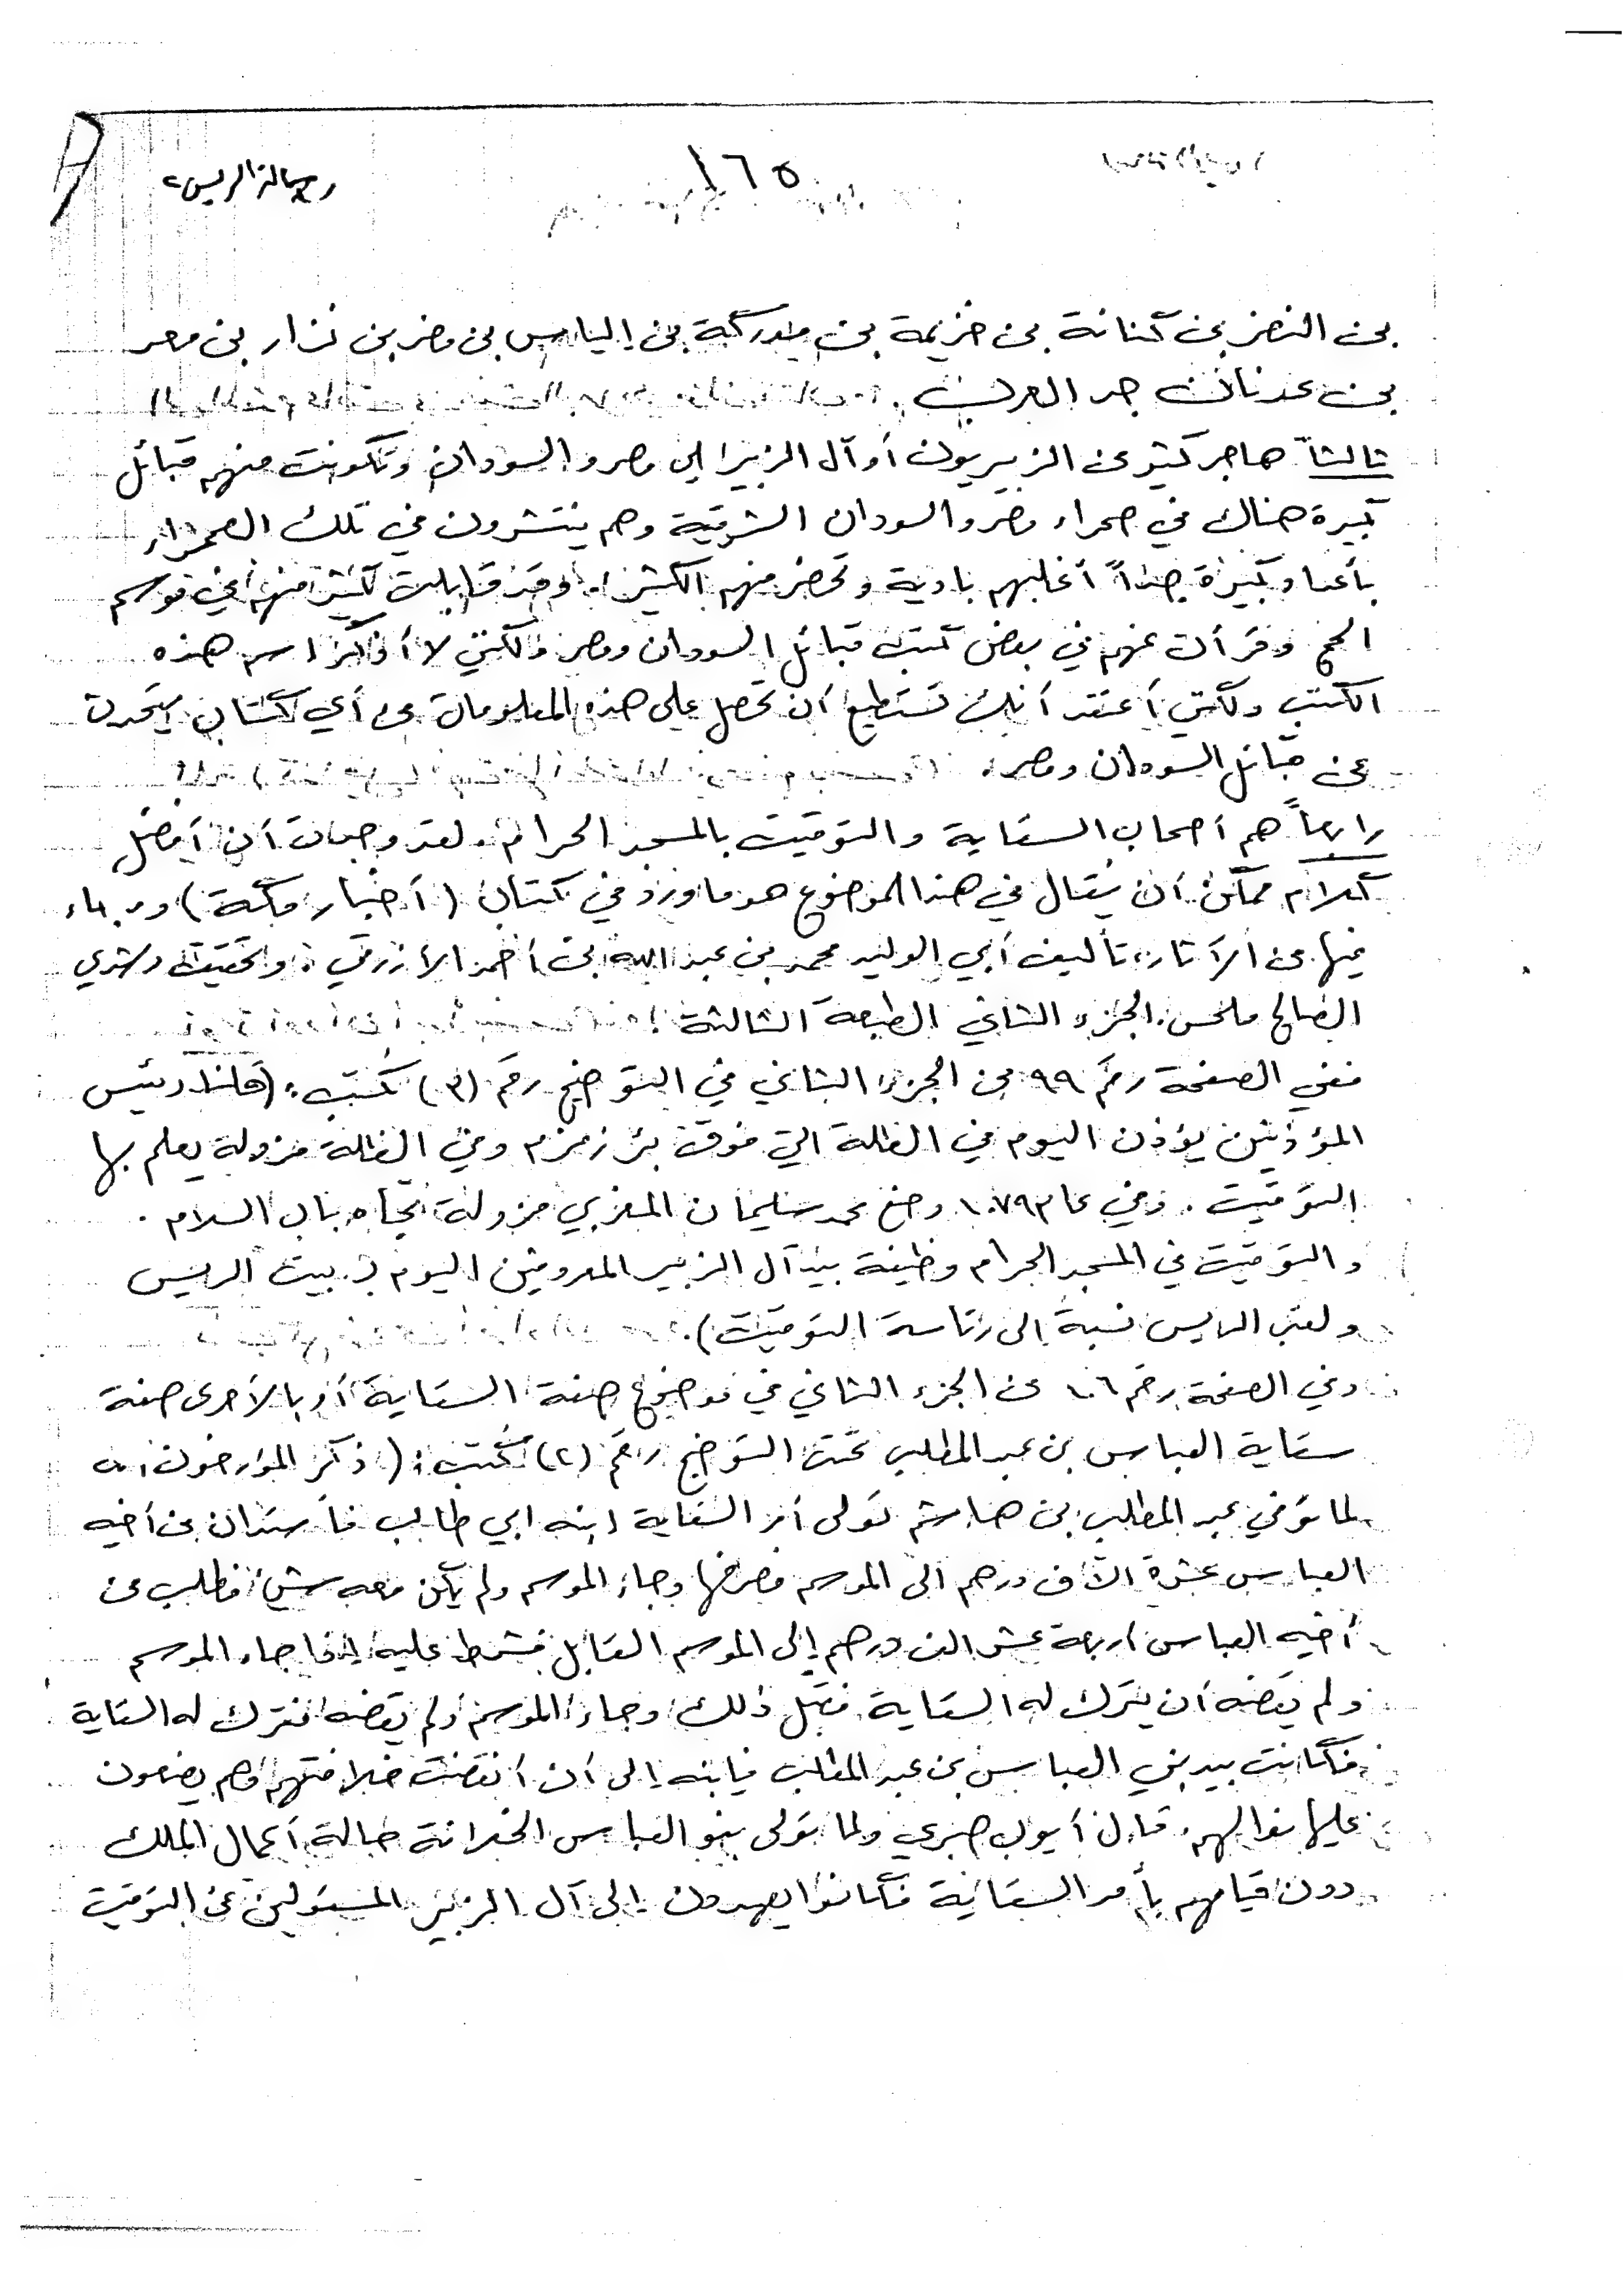 ١٦٥
رسالة الريس
بن النضر بن كنانة بن خزيمة بن مدركة بن إلياس بن مضر بن نزار بن معد
بن عدنان جد العرب .
ثالثاً هاجر كثير من الزبيريون أو آل الزبير إلى مصر والسودان وتكونت منهم قبائل
كبيرة هناك في صحراء مصر والسودان الشرقية وهم ينتشرون في تلك الصحراء
بأعداد كبيرة جداً أغلبهم بادية وتحضر منهم الكثير . وقد قابلت كثير منهم في موسم
الحج وقرأت عنهم في بعض كتب قبائل السودان ومصر ولكنني لا أذكر اسم هذه
الكتب ولكني أعتقد أنك تستطيع أن تحصل على هذه المعلومات من أي كتاب يتحدث
عن قبائل السودان ومصر .
رابعاً هم أصحاب السقاية والتوقيت بالمسجد الحرام . لقد وجدت أن أفضل
كلام ممكن أن يقال في هذا الموضوع هو ما ورد في كتاب ( أخبار مكة ) وما جاء
فيها من الآثار ، تأليف أبي الوليد محمد بن عبد الله بن أحمد الأزرقي ، وتحقيق رشدي
الصالح ملحس . الجزء الثاني الطبعة الثالثة .
ففي الصفحة رقم ٩٩ من الجزء الثاني في التوضيح رقم (٣) كتب : (قلنا رئيس
المؤذنين يؤذن اليوم في الظلة التي فوق بئر زمزم وفي الظلة مزولة يعلم بها
التوقيت . وفي عام ١٠٧٩ وضع محمد سليمان المغربي مزولة تجاه باب السلام .
والتوقيت في المسجد الحرام وظيفة بيد آل الزبير المعروفين اليوم بـ بيت الريس
ولقب الريس نسبة إلى رئاسة التوقيت).
وفي الصفحة رقم ١٠٦ من الجزء الثاني في موضوع صفة السقاية أو بالأحرى صفة
سقاية العباس بن عبد المطلب تحت التوضيح رقم (٢) كتب : ( ذكر المؤرخون أنه
لما توفي عبد المطلب بن هاشم تولى أمر السقاية ابنه ابي طالب فأستدان من أخيه
العباس عشرة الآف درهم الى الموسم فصرفها وجاء الموسم ولم يكن معه شيء فطلب من
أخيه العباس اربعة عشر الف درهم إلى الموسم القابل فشرط عليه إذا جاء الموسم
ولم يقضه أن يترك له السقاية فقبل ذلك وجاء الموسم ولم يقضه فترك له السقاية
فكانت بيد بني العباس بن عبد المطلب فابنه إلى أن أنقضت خلافتهم وهم يضعون
عليها نوالهم . قال أيوب صبري ولما تولى بنو العباس الخلافة حالت أعمال الملك
دون قيامهم بأمر السقاية فكانوا يعهدون إلى آل الزبير المسئولين عن التوقيت